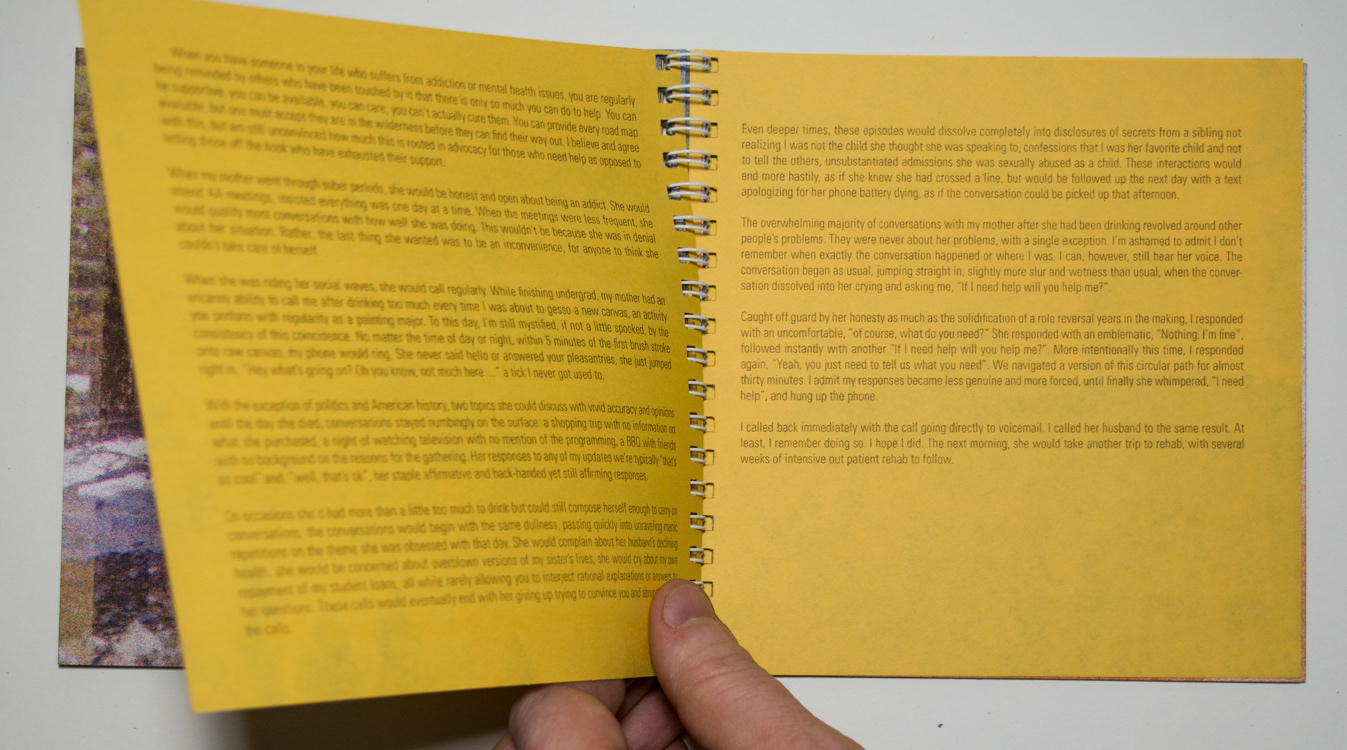 When you have someone in your life who suffers from addiction or mental health issues, you are regularly
being reminded by others who have been touched by it that there is only so much you can do to help. You can
be supportive, you can be available, you can care, you can't actually cure them. You can provide every road map
available, but one must accept they are in the wilderness before they can find their way out. I believe and agree
with this, but am still unconvinced how much this is rooted in advocacy for those who need help as opposed to
letting those off the hook who have exhausted their support.
When my mother went through sober periods, she would be honest and open about being an addict. She would
attend AA meetings, insisted everything was one day at a time. When the meetings were less frequent, she
would qualify most conversations with how well she was doing. This wouldn't be because she was in denial
about her situation. Rather, the last thing she wanted was to be an inconvenience, for anyone to think she
couldn't take care of herself.
When she was riding her social waves, she would call regularly. While finishing undergrad, my mother had an
uncanny ability to call me after drinking too much every time I was about to gesso a new canvas, an activity
you perform with regularity as a painting major. To this day, I'm still mystified, if not a little spooked, by the
consistency of this coincidence. No matter the time of day or night, within 5 minutes of the first brush stroke
onto raw canvas, my phone would ring. She never said hello or answered your pleasantries, she just jumped
right in, "Hey what's going on? Oh you know, not much here...." a tick I never got used to.
With the exception of politics and American history, two topics she could discuss with vivid accuracy and opinions
until the day she died, conversations stayed numbingly on the surface. a shopping trip with no information on
what she purchased, a night of watching television with no mention of the programming, a BBQ with friends
with no background on the reasons for the gathering. Her responses to any of my updates we're typically "that's
so cool" and, "well, that's ok", her staple affirmative and back-handed yet still affirming responses.
On occasions she'd had more than a little too much to drink but could still compose herself enough to carry on
conversations, the conversations would begin with the same dullness, passing quickly into unraveling manic
repetitions on the theme she was obsessed with that day. She would complain about her husband's declining
health, she would be concerned about overblown versions of my sister's lives, she would cry about my own
repayment of my student loans, all while rarely allowing you to interject rational explanations or answers to
her questions. These calls would eventually end with her giving up trying to convince you and
the calls.
Even deeper times, these episodes would dissolve completely into disclosures of secrets from a sibling not
realizing I was not the child she thought she was speaking to, confessions that I was her favorite child and not
to tell the others, unsubstantiated admissions she was sexually abused as a child. These interactions would
end more hastily, as if she knew she had crossed a line, but would be followed up the next day with a text
apologizing for her phone battery dying, as if the conversation could be picked up that afternoon.
The overwhelming majority of conversations with my mother after she had been drinking revolved around other
people's problems. They were never about her problems, with a single exception. I'm ashamed to admit I don't
remember when exactly the conversation happened or where I was. I can, however, still hear her voice. The
conversation began as usual, jumping straight in, slightly more slur and wetness than usual, when the conver-
sation dissolved into her crying and asking me, "If I need help will you help me?".
Caught off guard by her honesty as much as the solidification of a role reversal years in the making, I responded
with an uncomfortable, "of course, what do you need?" She responded with an emblematic, "Nothing. I'm fine",
followed instantly with another "If I need help will you help me?". More intentionally this time, I responded
again, "Yeah, you just need to tell us what you need". We navigated a version of this circular path for almost
thirty minutes. I admit my responses became less genuine and more forced, until finally she whimpered, "I need
help", and hung up the phone.
I called back immediately with the call going directly to voicemail. I called her husband to the same result. At
least, I remember doing so. I hope I did. The next morning, she would take another trip to rehab, with several
weeks of intensive out patient rehab to follow.